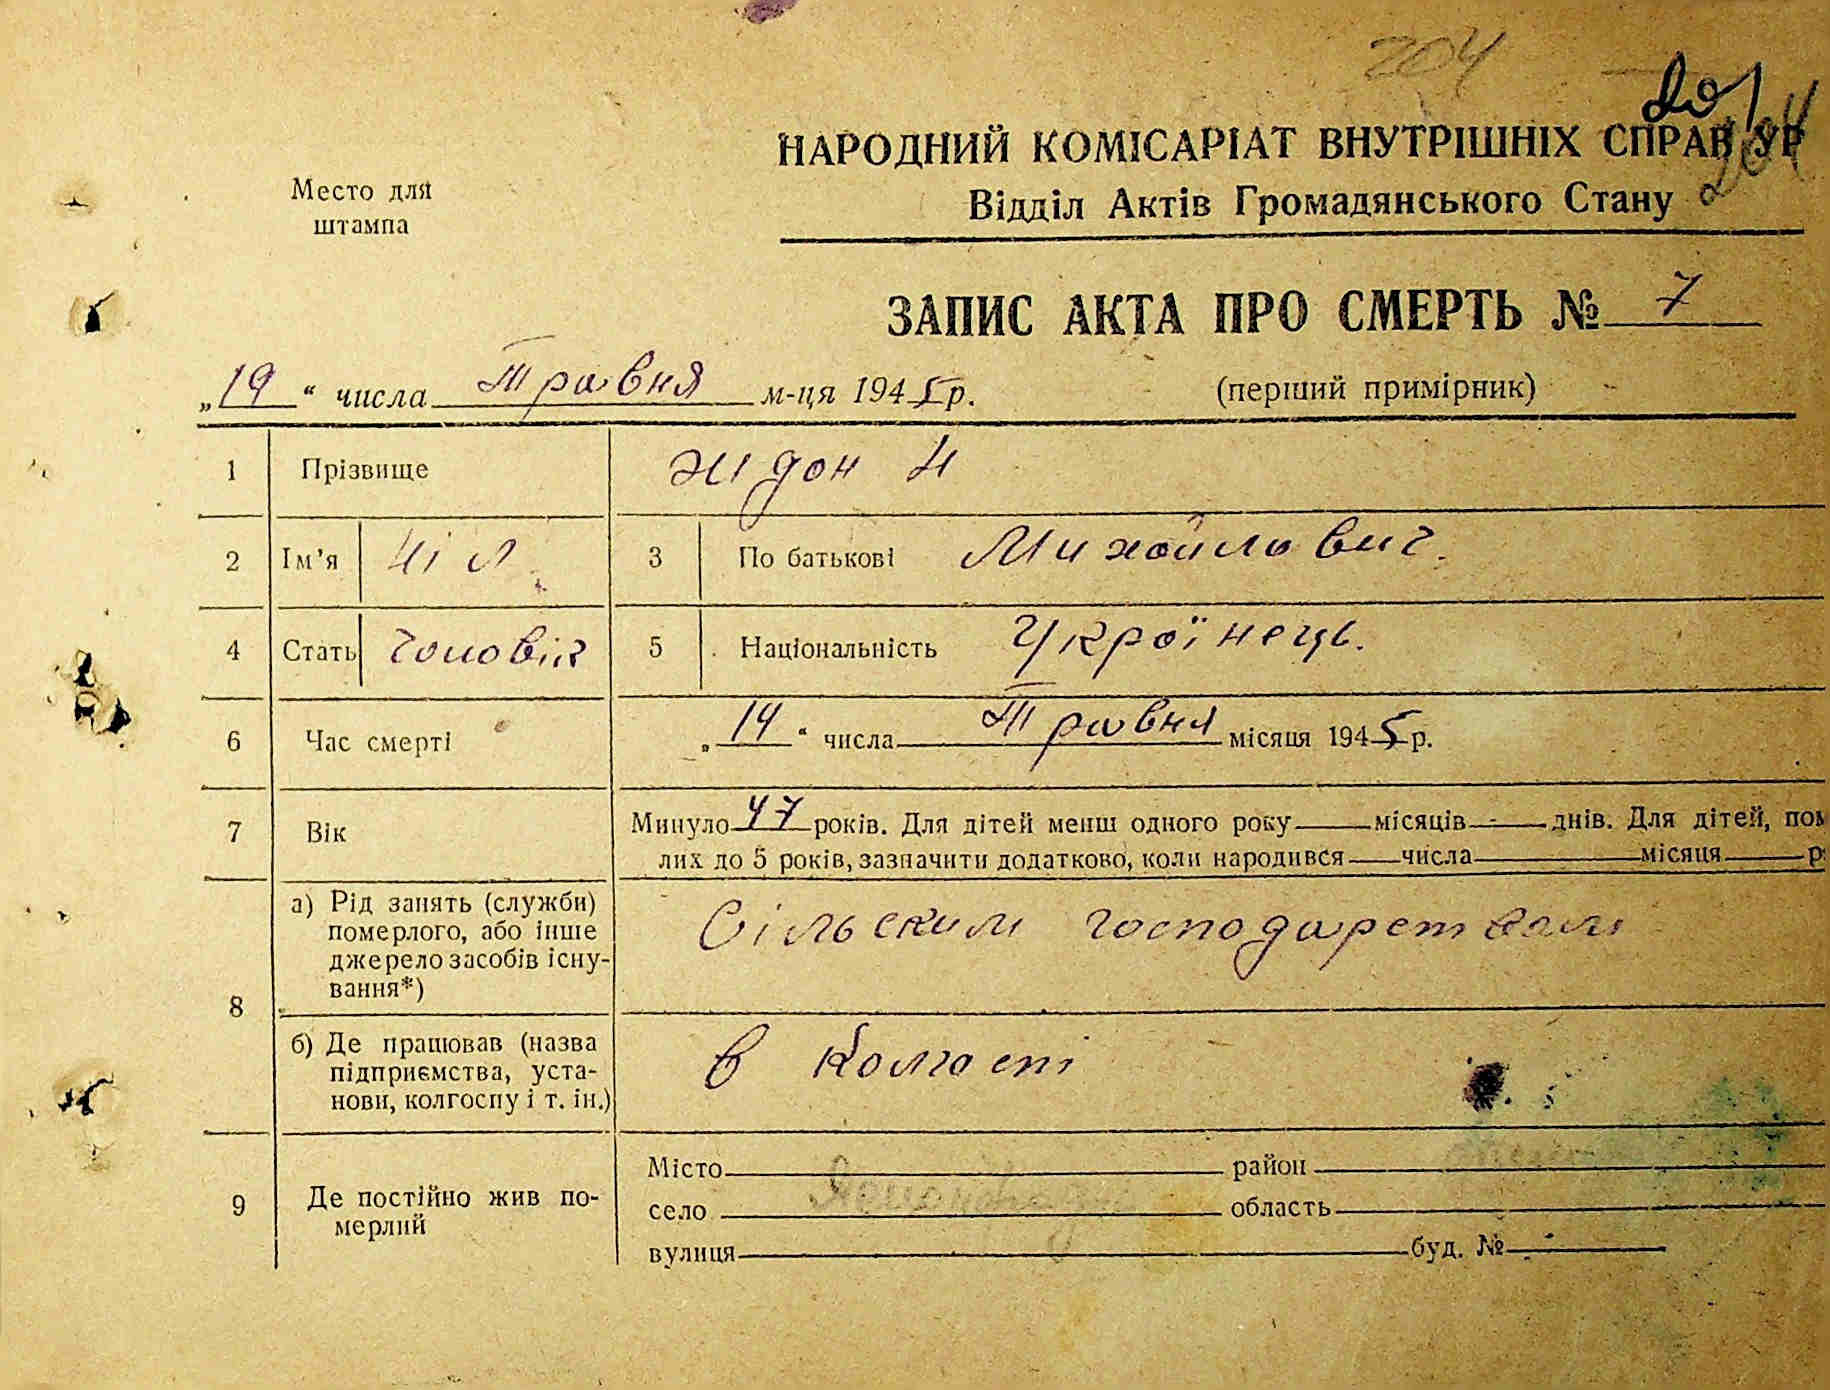 204
201
204
НАРОДНИЙ КОМІСАРІАТ ВНУТРІШНІХ СПРАВ УР
Відділ Актів Громадянського Стану
Место для
штампа
ЗАПИС АКТА ПРО СМЕРТЬ № 7
„19“ числа Травня м-ця 1945 р.
(перший примірник)
1 Прізвище Жидон
2 Ім’я 3 По батькові Михайлович.
4 Стать Чоловік 5 Національність Українець.
6 Час смерті „14“ числа Травня місяця 1945 р.
7 Вік Минуло 47 років. Для дітей менш одного року місяців - днів. Для дітей, пом
лих до 5 років, зазначити додатково, коли народився числа місяця р
8 а) Рід занять (служби)
померлого, або інше
джерело засобів існу-
вання*)
Сільским господарством
б) Де працював (назва
підприємства, уста-
нови, колгоспу і т. ін.)
в колгоспі
9 Де постійно жив по-
мерлий
Місто район
село область
вулиця буд. №